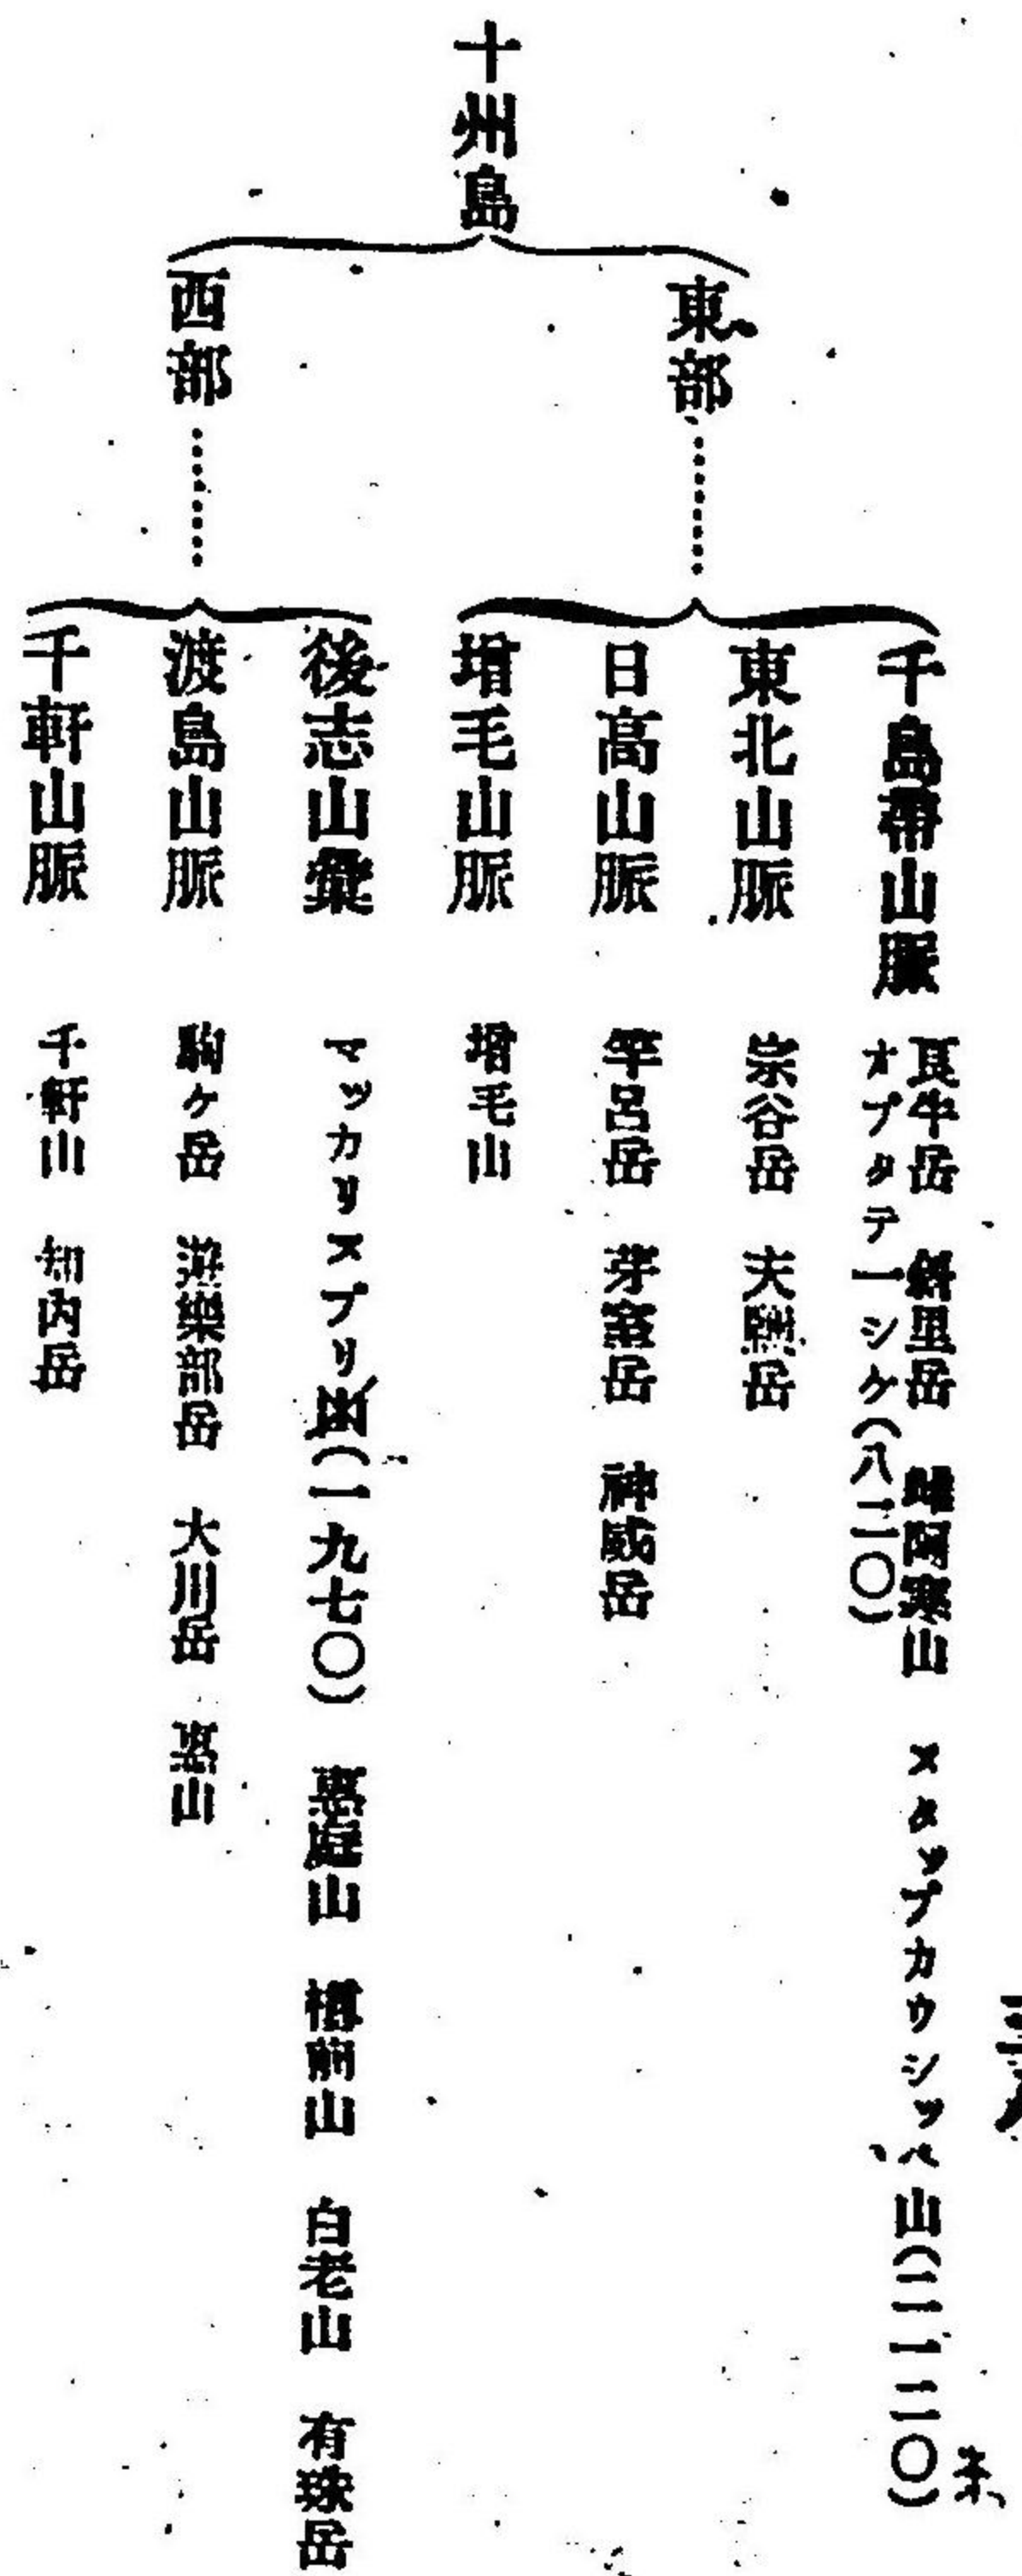 十州島
東部
千島帶山脈 良牛岳 斜里岳 雌阿寒山 ヌタップカウシッペ山(二一二〇)
オプタテーシケ(八二〇)
東北山脈 宗谷岳 天鹽岳
日高山脈 竿呂岳 芽室岳 神威岳
增毛山脈 增毛山
西部
後志山彙 マッカリヌプリ山(一九七〇) 惠庭山 樽前山 白老山 有珠岳
渡島山脈 駒ヶ岳 遊樂部岳 大川岳 惠山
千軒山脈 千軒山 知内岳